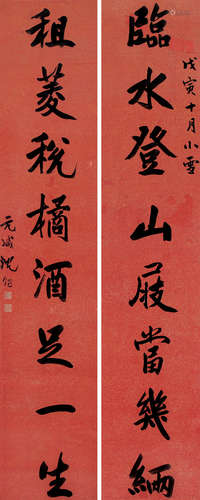 臨水登山屐當幾緉
戊寅十月小雪
租菱稅橘酒足一生
元咸沈